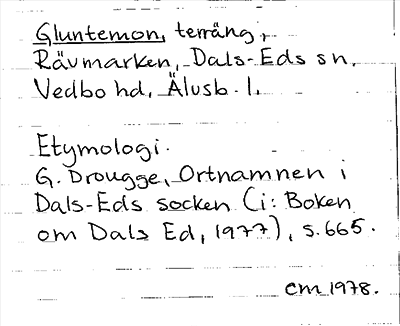 Gluntemon, terräng,
Rävmarken, Dals-Eds sn,
Vedbo hd, Älvsb. l.
Etymologi.
G. Drougge, Ortnamnen i
Dals-Eds socken (i: Boken
om Dals Ed, 1977), s. 665.
cm 1978.